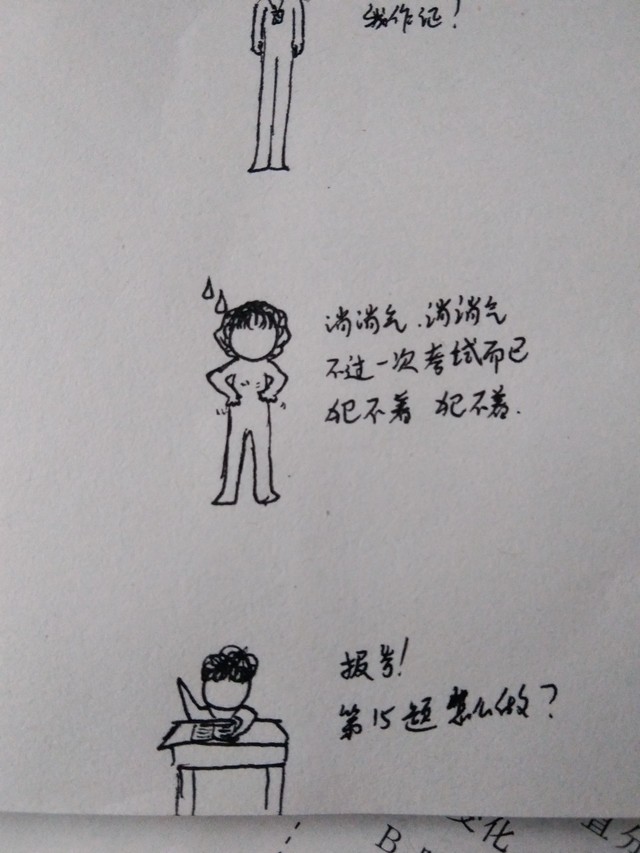 我作证！
消消气.消消气
不过一次考试而已
犯不着 犯不着.
报号！
第15题怎么做？
B
变化